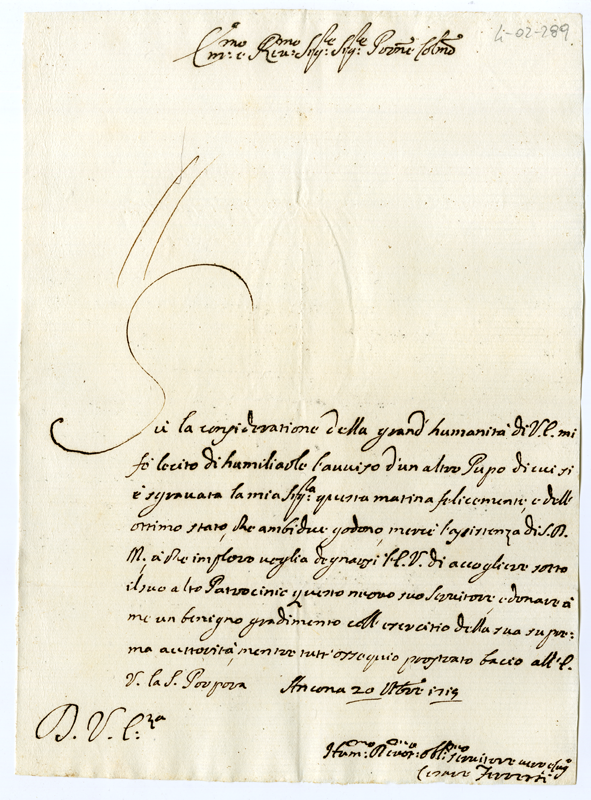 li-02-289
Em:mo e Rev:mo Sig:re Sig:re Pron̄e Col:mo
Sù la consideratione della grand'humanità di V. E. mi
fò lecito di humiliarle l'avviso d'un altro Pupo di cui si
è sgravata la mia Sig:ra questa matina felicemente, e dell'
ottimo stato, che ambidue godono, mercè l'assistenza di S. D.
M., à che imploro voglia degnarsi l'E. V. di accogliere sotto
il suo alto Patrocinio questo nuovo suo servitore, e donare à
me un benigno gradimento coll'esercitio della sua supre:
ma auttorità, mentre tutt'ossequio prostrato bacio all'E.
V. la S. Porpora Ancona 20
D. V. E:za
Hum:mo Devot:mo obl:mo servitore
Cesare Ferretti